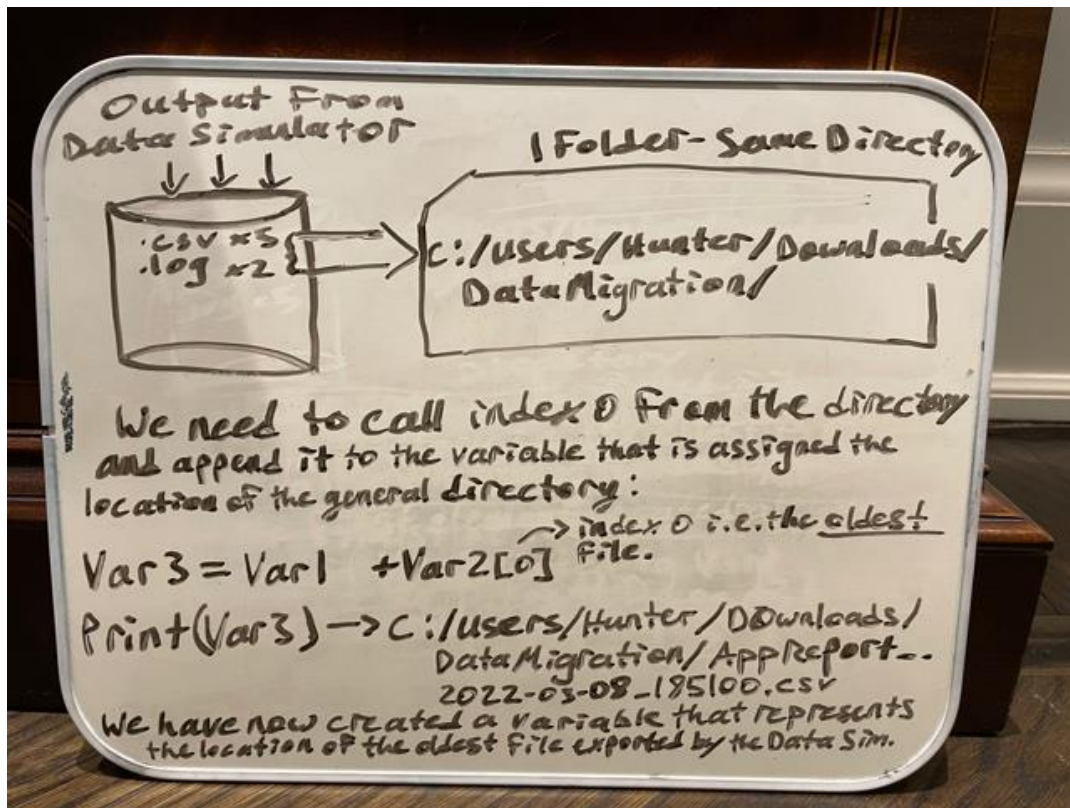 Output From
Data Simulator
1 Folder - Same Directory
.csv x5
.log x2
C:/users/Hunter/Downloads/
DataMigration/
We need to call index 0 From the directory
and append it to the variable that is assigned the
location of the general directory:
→ index 0 i.e. the oldest
file.
Var3 = Var1 + Var2[0]
Print(Var3) → C:/users/Hunter/Downloads/
DataMigration/AppReport_..
2022-03-08_185100.csv
We have now created a variable that represents
the location of the oldest File exported by the Data Sim.